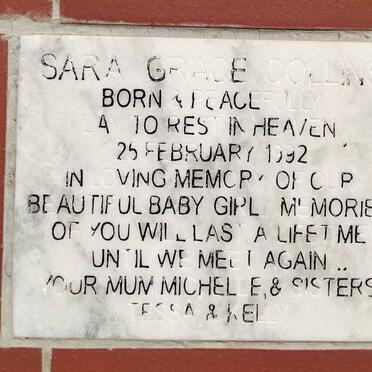 SARA GRACE COLLINS
BORN & PEACEFULLY
LAY TO REST IN HEAVEN
25 FEBRUARY 1992
IN LOVING MEMORY OF OUR
BEAUTIFUL BABY GIRL. MEMORIES
OF YOU WILL LAST A LIFETIME
UNTIL WE MEET AGAIN...
YOUR MUM MICHELLE, & SISTERS
TESSA & KELLY